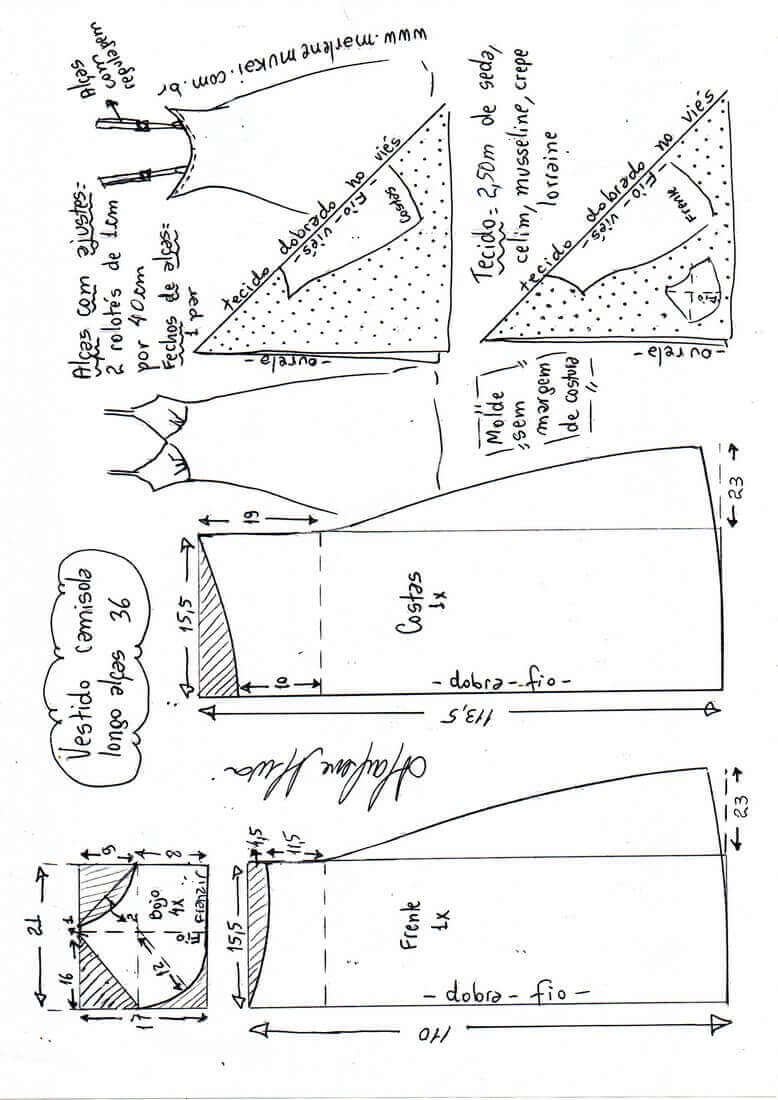 Vestido camisola
longo alças 36
Alças com ajustes=
2 rolotés de 1cm
por 40cm
Fechos de alças=
1 par
Alças
com
regulagem
www.marlenemukai.com.br
tecido dobrado no viés
-fio-viés-
Costas
-ourela-
Tecido= 2,50m de seda,
cetim, musseline, crepe
lorraine
tecido dobrado no viés
-fio-viés-
Frente
fio
-ourela-
Molde
sem
margem
de costura
19
15,5
10
Costas
1x
-dobra-fio-
113,5
23
21
16
1
9
8
2
Bojo
4x
12
fio
Franzir
17
4,5
11,5
15,5
Frente
1x
-dobra-fio-
110
23